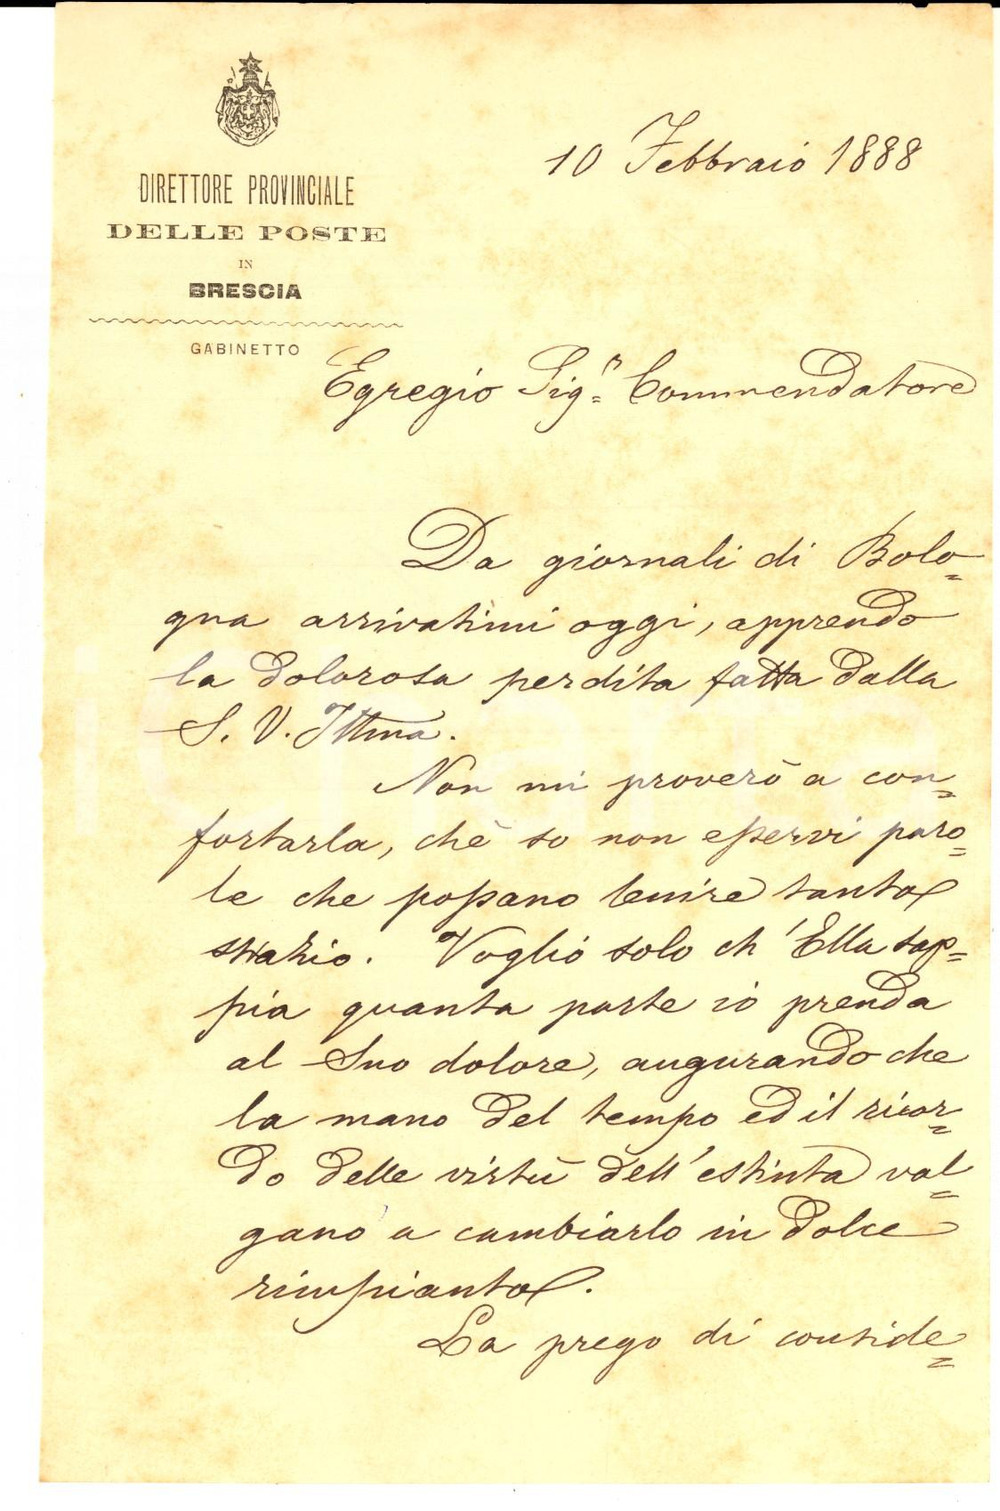 DIRETTORE PROVINCIALE
DELLE POSTE
IN
BRESCIA
GABINETTO
10 Febbraio 1888
Egregio Sig.r Commendatore
Da giornali di Bolo=
gna arrivatimi oggi, apprendo
la dolorosa perdita fatta dalla
S. V. Illma.
Non mi proverò a con=
fortarla, chè so non esservi paro=
le che possano lenire tanto
strazio. Voglio solo ch'Ella sap=
pia quanta parte io prenda
al Suo dolore, augurando che
la mano del tempo ed il ricor=
do delle virtù dell'estinta val=
gano a cambiarlo in dolce
rimpianto.
La prego di conside=